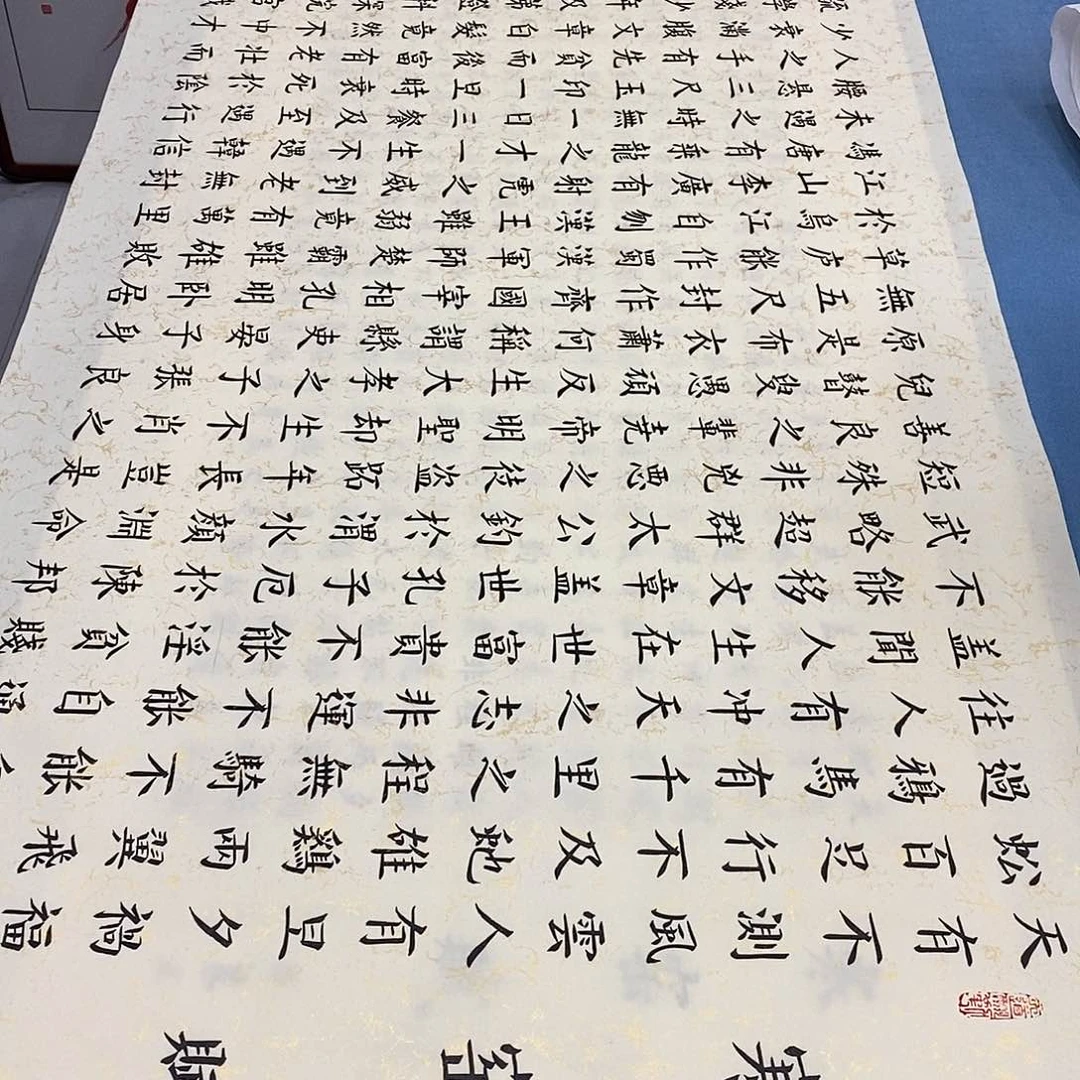 寒窑賦
天有不測風雲人有旦夕禍福
蚣百足行不及虵雄鷄兩翼飛
過鴉馬有千里之程無騎不能
往人有冲天之志非運不能自通
盖聞人生在世富貴不能淫貧賤
不能移文章盖世孔子厄於陳邦
武略超群太公釣於渭水顔淵命
短殊非兇惡之徒盜跖年長豈是
善良之輩堯帝明聖却生不肖之
兒瞽叟愚頑反生大孝之子張良
原是布衣蕭何稱謂縣吏晏子身
無五尺封作齊國宰相孔明卧居
草庐能作蜀漢軍師楚霸雖雄敗
於烏江自刎漢王雖弱竟有萬里
江山李廣有射虎之威到老無封
馮唐有乘龍之才一生不遇韓信
未遇之時無一日三餐及至遇行
腰懸三尺玉印一旦時衰死於陰
人之手有先貧而後富有老壯而
少衰滿腹文章白髮竟然不中才